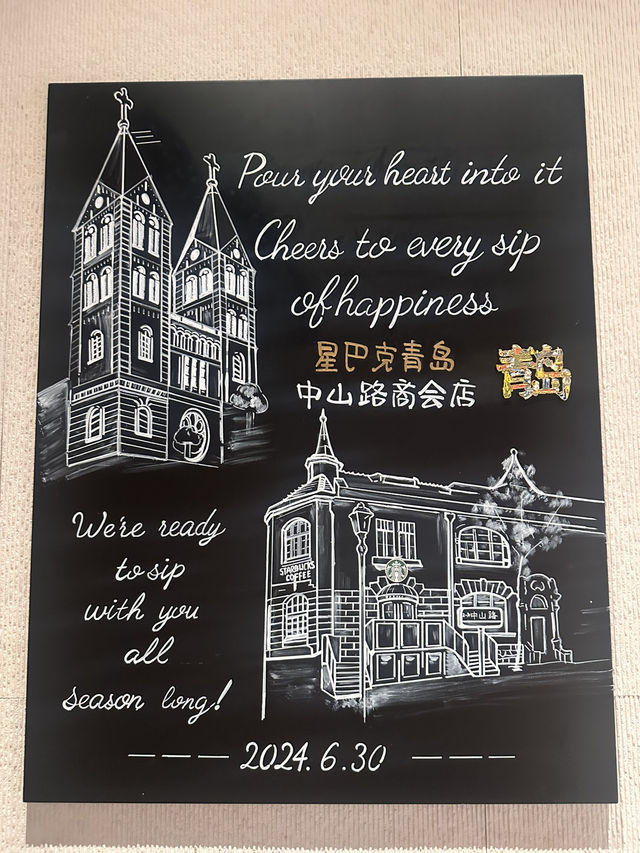 Pour your heart into it
Cheers to every sip
of happiness
星巴克青岛
中山路商会店
青岛
We're ready
to sip
with you
all
season long!
STARBUCKS
COFFEE
中山路
2024.6.30